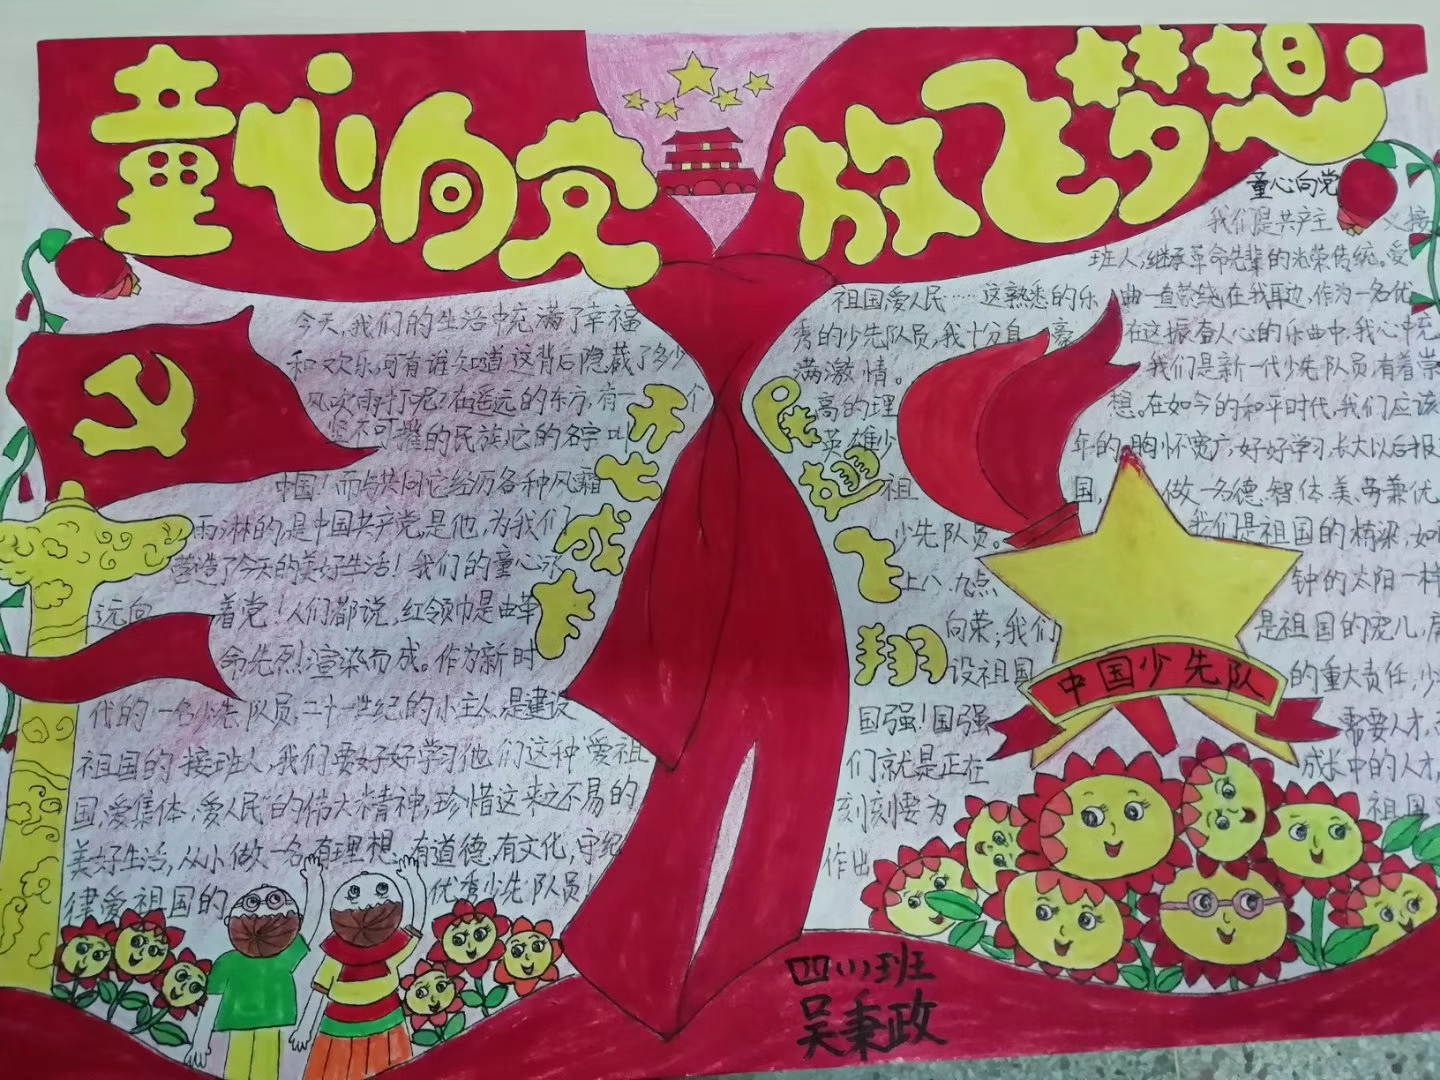 童心向党 放飞梦想
今天,我们的生活中充满了幸福
和欢乐,可有谁知道这背后隐截了多少
风吹雨打呢?在遥远的东方,有一个
坚不可摧的民族,它的名字叫
中国!而与共同它经历各种风霜
雨淋的,是中国共产党,是他,为我们
营造了今天的美好生活!我们的童心永
远向着党!人们都说,红领巾是由革
命先烈渲染而成。作为新时
代的一名少先队员,二十一世纪的小主人,是建设
祖国的接班人,我们要好好学习他们这种爱祖
国,爱集体,爱人民的伟大精神,珍惜这来之不易的
美好生活,从小做一名有理想,有道德,有文化,守纪
律爱祖国的优秀少先队员!
开
心
成
长
展
翅
飞
翔
童心向党
我们是共产主义接
班人,继承革命先辈的光荣传统。爱
祖国爱人民……这熟悉的乐曲一直萦绕在我耳边,作为一名优
秀的少先队员,我十分自豪 在这振奋人心的乐曲中,我心中充
满激情。我们是新一代少先队员,有着崇
高的理想。在如今的和平时代,我们应该
英雄少年的胸怀宽广,好好学习,长大以后报
祖国,做一名德、智、体、美、劳兼优
少先队员。我们是祖国的栋梁,如
上八、九点钟的太阳一样
向荣;我们是祖国的宠儿,
设祖国的重大责任,少
国强!国强需要人才,
们就是正在成长中的人才,
刻刻要为祖国
作出
中国少先队
四(1)班
吴秉政